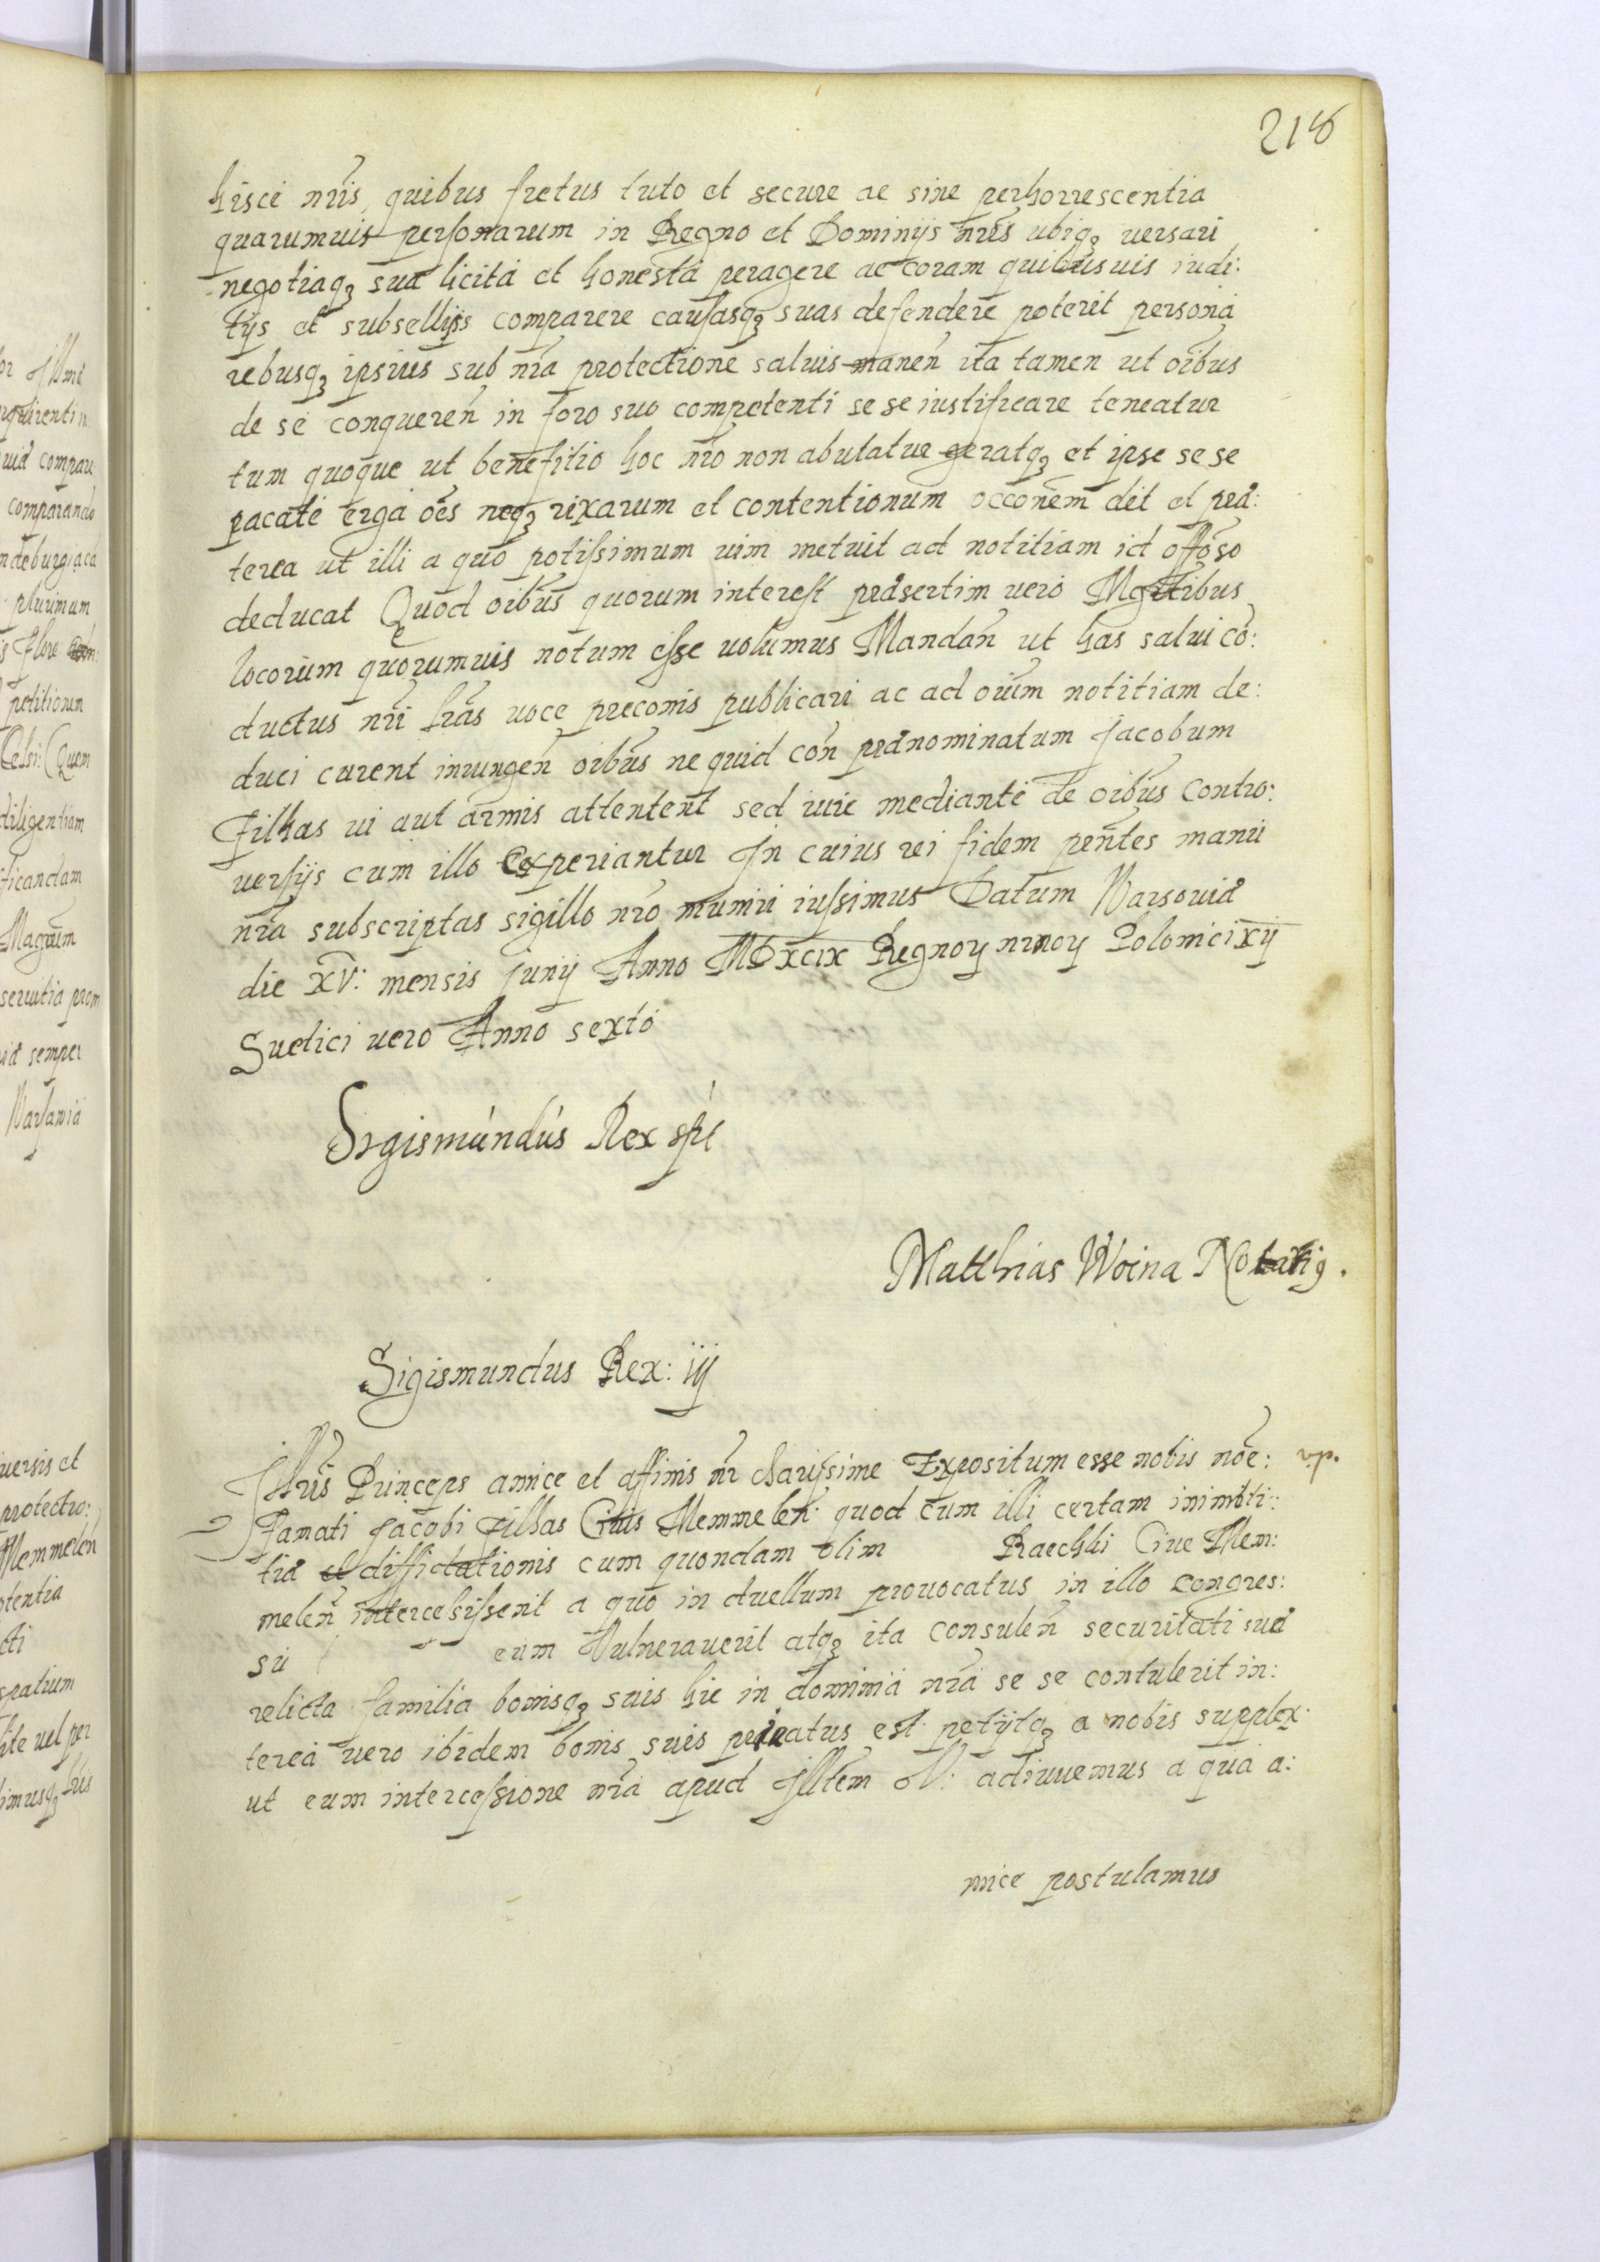 218
hisce nr̃is, quibus fretus tuto et secure ac sine perhorrescentia
quarumuis personarum in Regno et Dominijs nr̃is ubiq3 versari
negotiaq3 sua licita et honesta peragere ac coram quibusuis iudi:
tijs et subsellijs comparere causasq3 suas defendere poterit persona
rebusq3 ipsius sub nr̃a protectione saluis manen̄ ita tamen ut oib̃us
de se conqueren̄ in foro suo competenti se se iustificare teneatur
tum quoque ut benefitio hoc nr̃o non abutatur geratq3 et ipse se se
pacate erga oẽs neq3 rixarum et contentionum occonẽm det et præ:
terea ut illi a quo potissimum uim metuit ad notitiam id offõso
deducat Quod oib̃us quorum interest præsertim vero Mgrtibus
locorum quorumuis notum esse uolumus Mandan̄ ut has salui cõ:
ductus nr̃i lr̃as uoce preconis publicari ac ad oiũm notitiam de:
duci curent iniungen̄ oib̃us ne quid con̄ prænominatum Jacobum
Filhas ui aut armis attentent sed iure mediante de oib̃us contro:
uersijs cum illo experiantur In cuius rei fidem pñtes manu
nr̃a subscriptas sigillo nr̃o muniri iussimus Datum Varsouiæ
die XV: mensis Junij Anno MDXCIX Regnoꝝ nr̃oꝝ Polonici xij
Suetici uero Anno sexto
Sigismúndús Rex sp̃t
Matthias Woina Notariꝯ.
Sigismundus Rex: iij
Illr̃is Princeps amice et affinis nr̃ charissime Expositum esse nobis noẽ: v.p.
Famati Jacobi Filhas Ciuis Memmelen̄ quod cum illi certam inimiti:
tiæ et diffidationis cum quondam olim Raechli Ciue Mem:
melen̄ intercessissent a quo in duellum prouocatus in illo congres:
su eum Vulnerauerit atq3 ita consulen̄ securitati suæ
relicta familia bonisq3 suis hic in dominia nr̃a se se contulerit in:
terea vero ibidem bonis suis priuatus est petijtq3 a nobis supplex
ut eum intercessione nr̃a apud Illtẽm V: adiuuemus a qua a:
mice postulamus